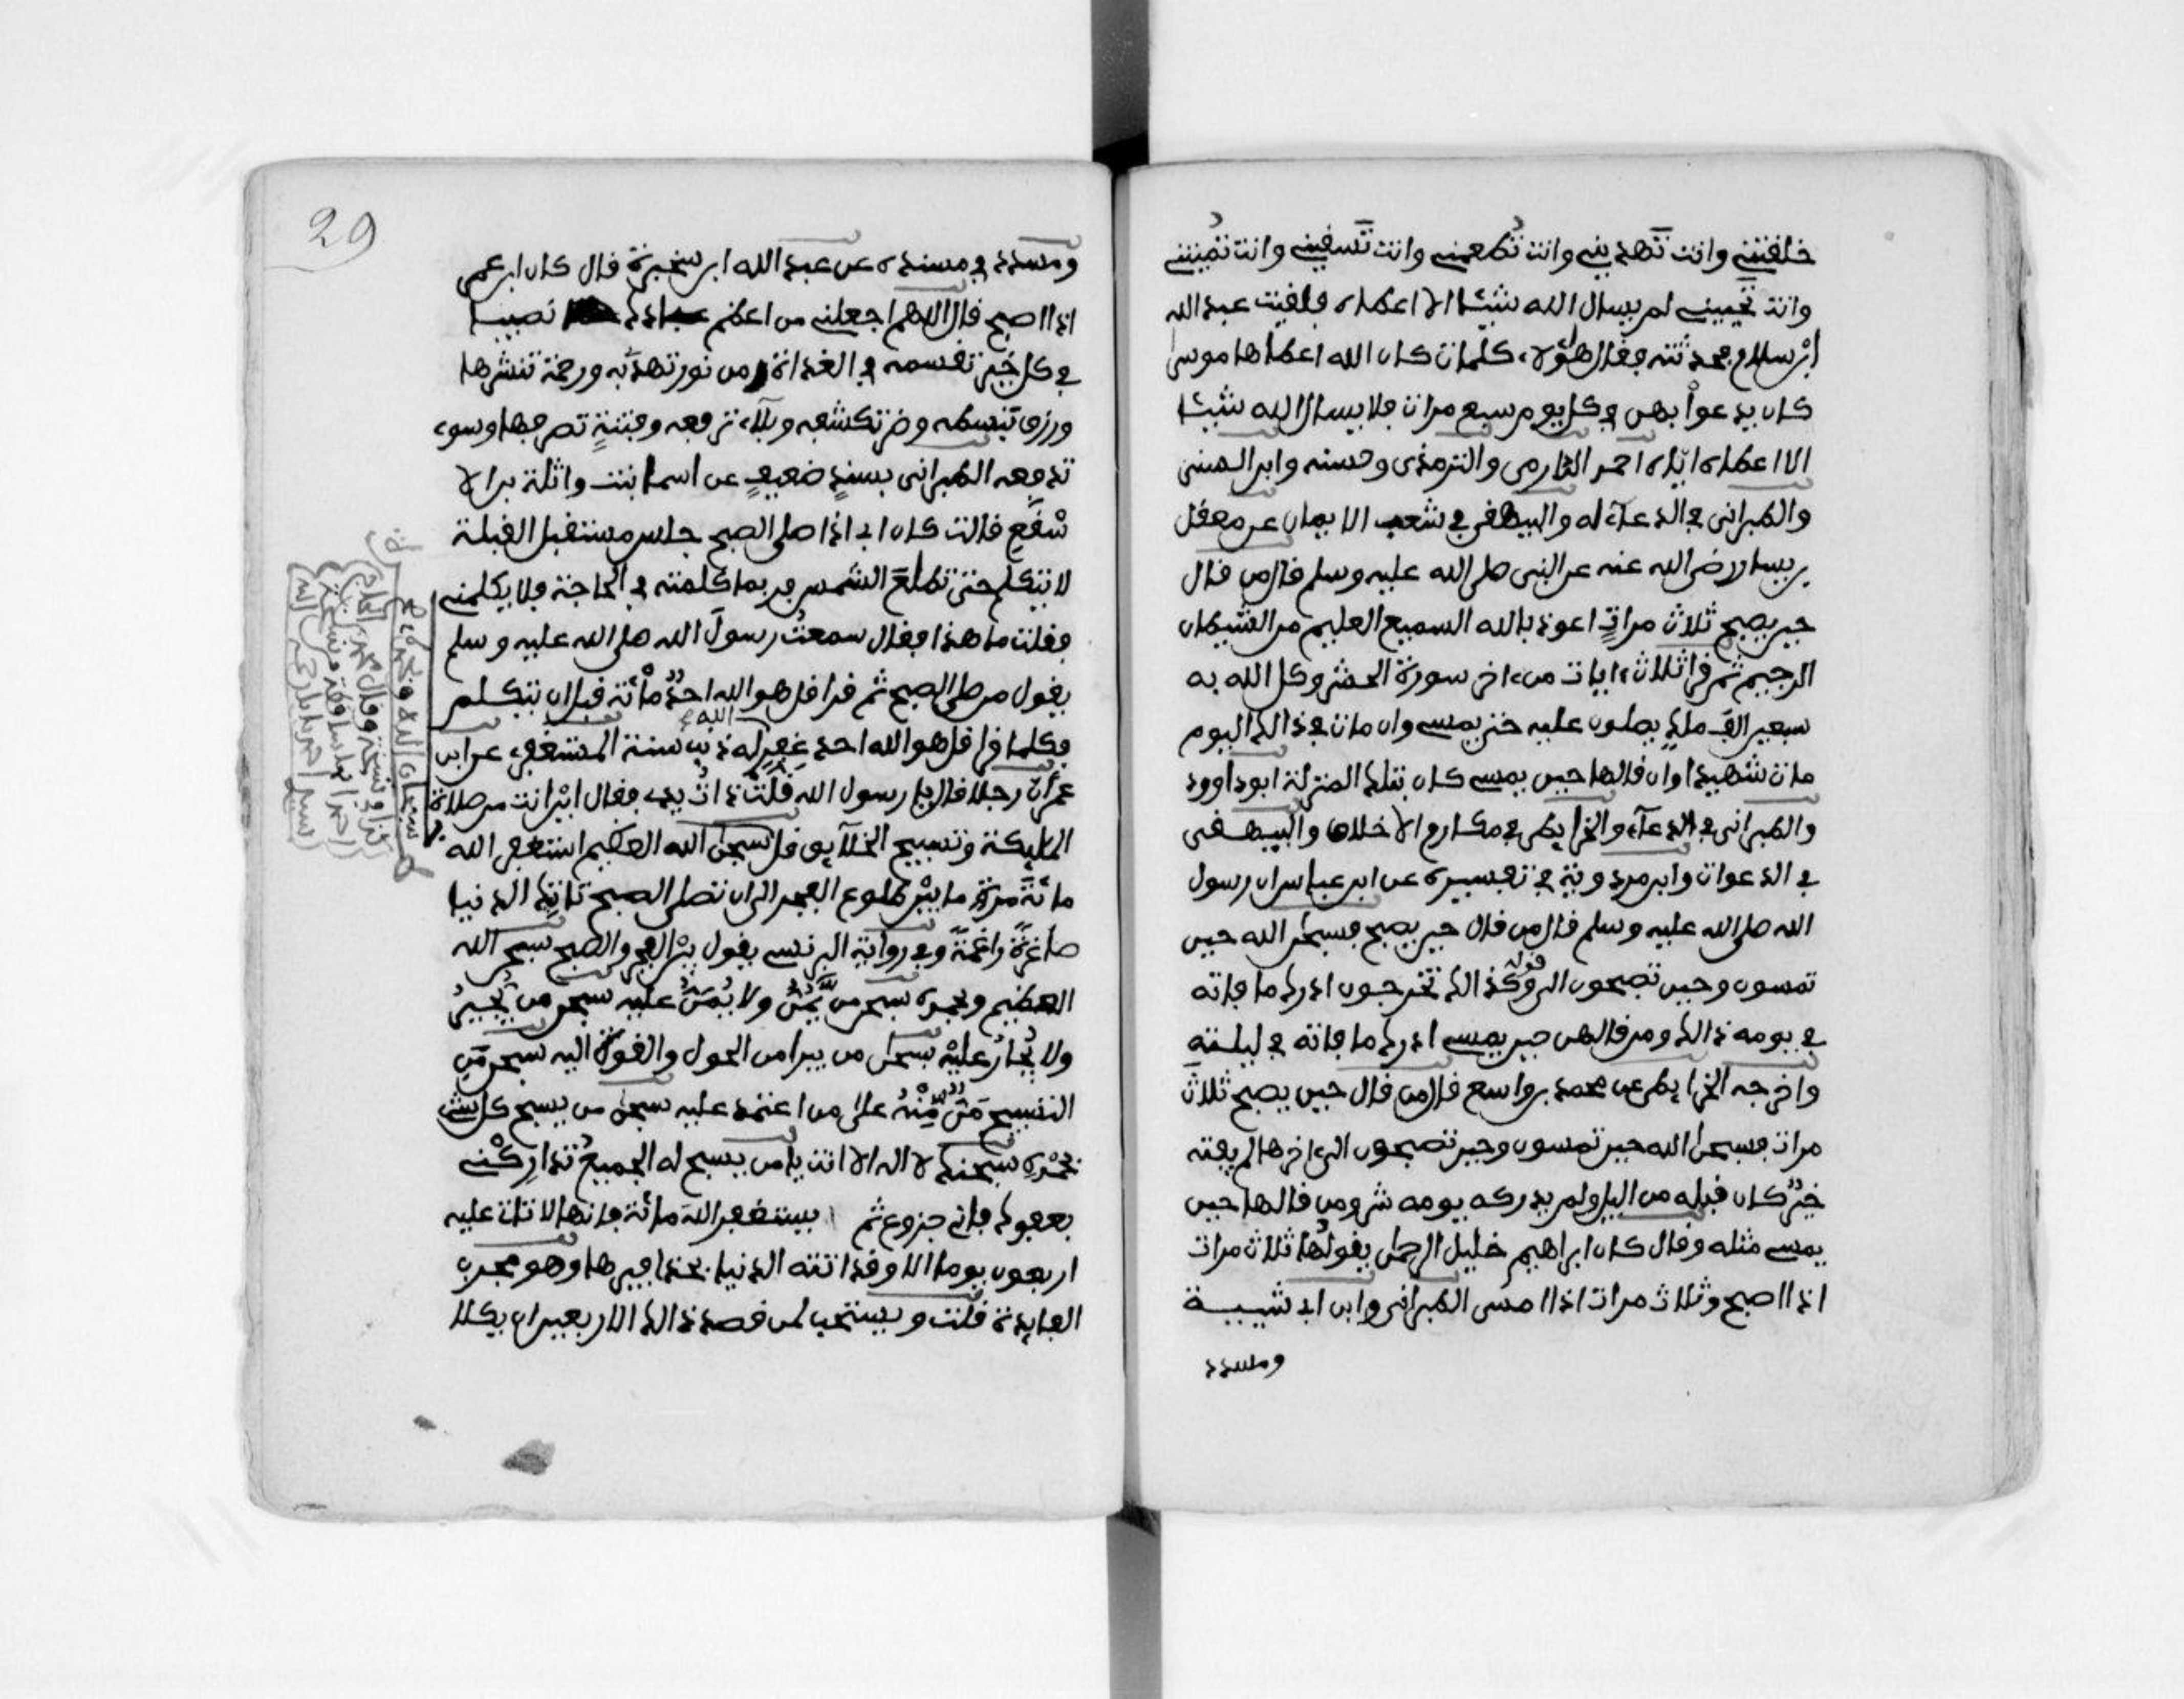 خلقتني وانت تهديني وانت تطعمني وانت تسقيني وانت تميتني
وانت تحييني لم يسال الله شيئا الا اعطاه فلقيت عبد الله
ابن سلام فحدثته فقال هؤلاء كلمات كان الله اعطاها موسى
كان يدعوا بهن في كل يوم سبع مرات فلا يسال الله شيئا
الا اعطاه اياه احمد الدارمي والترمذي وحسنه وابن السني
والطبراني في الدعاء له والبيهقي في شعب الايمان عن معقل
بن يسار رضي الله عنه عن النبي صلى الله عليه وسلم قال من قال
حين يصبح ثلاث مرات اعوذ بالله السميع العليم من الشيطان
الرجيم ثم قرا ثلاث ءايات من ءاخر سورة الحشر وكل الله به
سبعين الف ملك يصلون عليه حتى يمسي وان مات في ذالك اليوم
مات شهيدا وان قالها حين يمسي كان بتلك المنزلة ابو داوود
والطبراني في الدعاء والخرايطي في مكارم الاخلاق والبيهقي
في الدعوات وابن مردوية في تفسيره عن ابن عباس ان رسول
الله صلى الله عليه وسلم قال من قال حين يصبح فسبحن الله حين
تمسون وحين تصبحون الى قوله وكذالك تخرجون ادرك ما فاته
في يومه ذالك ومن قالهن حين يمسي ادرك ما فاته في ليلته
واخرجه الخرايطي عن محمد بن واسع قال من قال حين يصبح ثلاث
مرات فسبحن الله حين تمسون وحين تصبحون الى ءاخرها لم يفته
خير كان قبله من اليل ولم يدركه يومه شر ومن قالها حين
يمسي مثله وقال كان ابراهيم خليل الرحمن يقولها ثلاث مرات
اذا اصبح وثلاث مرات اذا امسى الطبراني وابن ابي شيبة
ومسدد
29
ومسدد في مسنده عن عبد الله ابن سخبرة قال كان ابن عمر
اذا اصبح قال اللهم اجعلني من اعظم عبادك نصيبا
في كل خير تقسمه في الغداة ومن نور تهد به ورحمة تنشرها
ورزق تبسطه وضر تكشفه وبلاء ترفعه وفتنة تصرفها وسوء
تدفعه الطبراني بسند ضعيف عن اسما بنت واثلة بن الا
سقع قالت كان ابي اذا صلى الصبح جلس مستقبل القبلة
لا يتكلم حتى تطلع الشمس فربما كلمته في الحاجة فلا يكلمني
فقلت ما هذا فقال سمعت رسول الله صلى الله عليه وسلم
يقول من صلى الصبح ثم قرا قل هو الله احد مائة قبل ان يتكلم
فكلما قرا قل هو الله احد غفر الله له ذنب سنة المستغفري عن ابن
عمر ان رجلا قال يا رسول الله قلت ذات يدي فقال اين انت من صلاة
المليكة وتسبيح الخلايق قل سبحن الله العظيم استغفر الله
مائة مرة ما بين طلوع الفجر الى ان تصلي الصبح تاتك الدنيا
صاغرة راغمة وفي رواية البرنسي يقول بين الفجر والصبح سبحن الله
العظيم وبحمده سبحن من يمن ولا يمن عليه سبحن من يجير
ولا يجار عليه سبحن من يبرا من الحول والقوة اليه سبحن من
التسبيح من منه على من اعتمد عليه سبحن من يسبح كل شيء
بحمده سبحنك لا اله الا انت يا من يسبح له الجميع تداركني
بعفوك فاني جزوع ثم يستغفر الله مائة فانها لا تات عليه
اربعون يوما الا وقد اتته الدنيا بحذافيرها وهو مجرب
الفايدة قلت ويستحب لمن قصد ذالك الاربعين ان يكلا